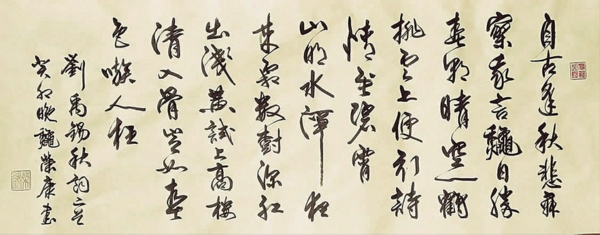 自古逢秋悲寂
寥我言龝日勝
春朝晴空一鶴
排雲上便引詩
情到碧霄
山明水淨夜
來霜數樹深紅
出淺黃試上高樓
清入骨豈如春
色嗾人狂
劉禹錫秋詞二首
癸卯晚龝榮康書